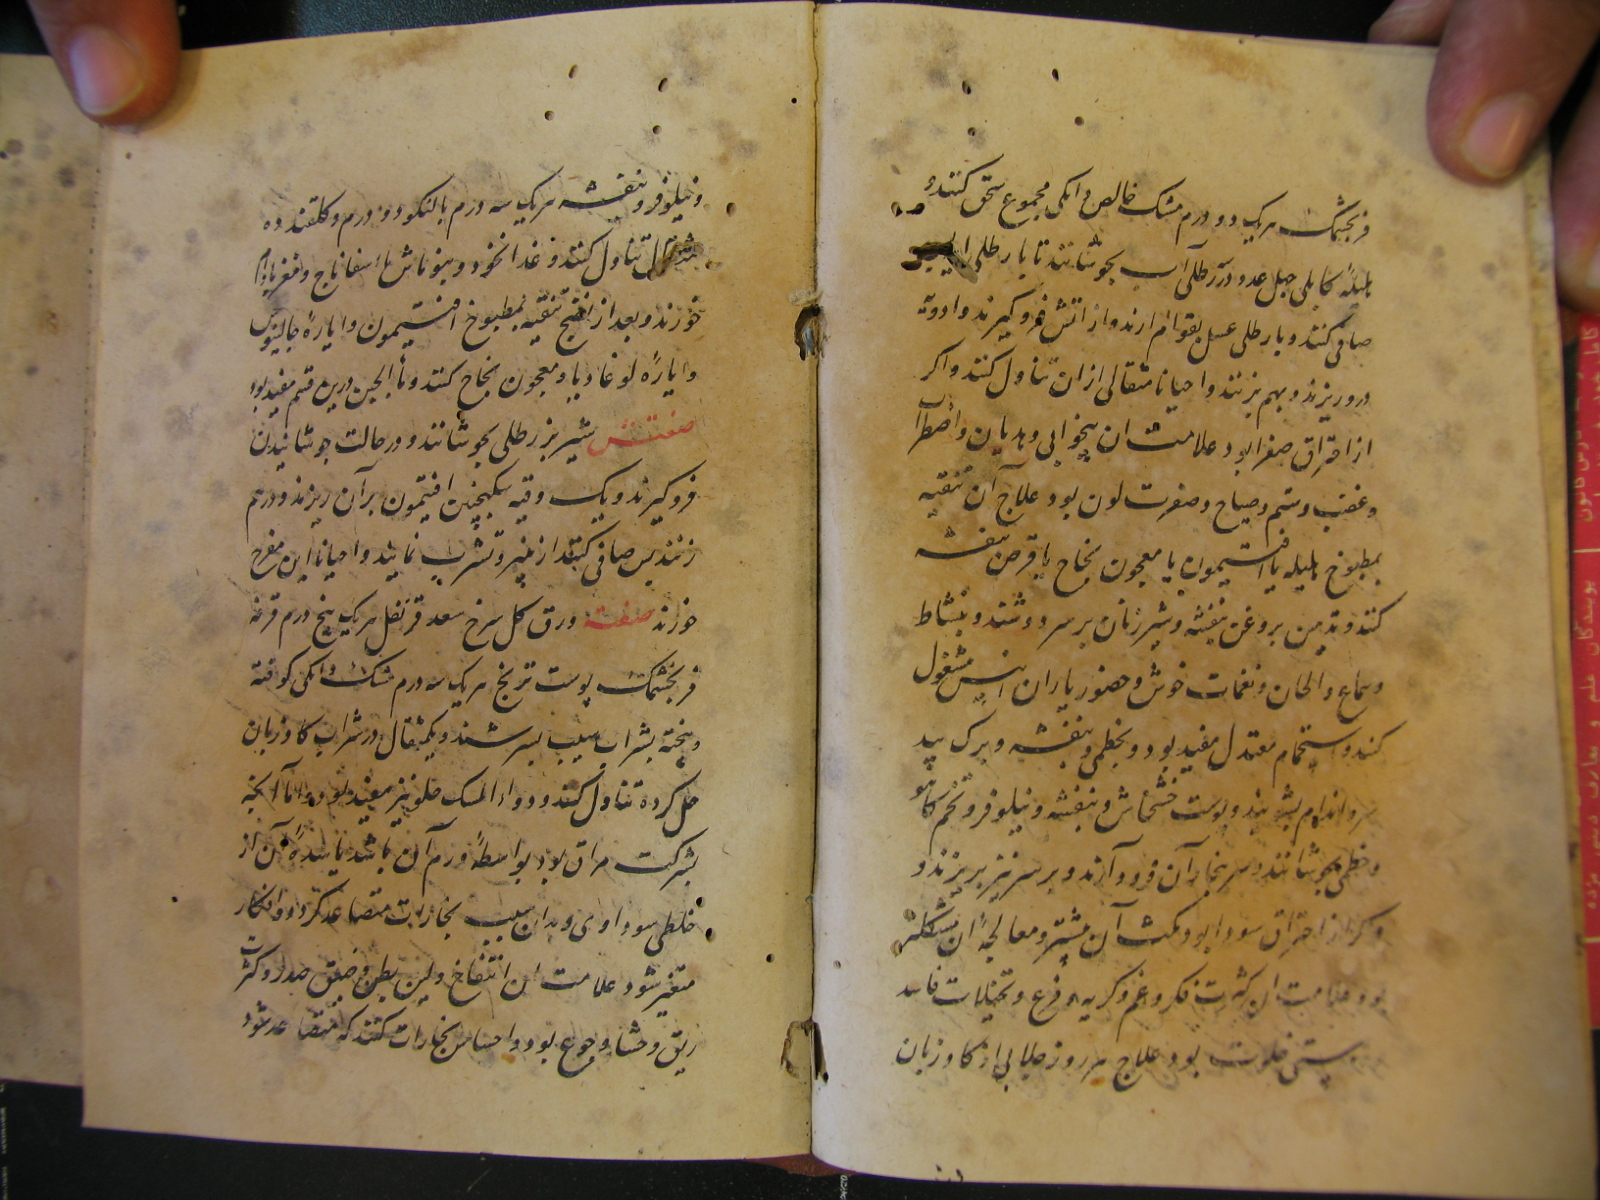 فرنجمشک هریک دو درم مشک خالص دانکی مجموع سحق کنند و
هلیله کابلی چهل عدد در رطلی آب بجوشانند تا با رطلی آید پس
صافی کنند و با رطلی عسل بقوام ارند و از اتش فرو کیرند و ادویه
درو ریزند و بهم بزنند و احیانا مثقالی ازان تناول کنند و اکر
از احتراق صفرا بود علامت ان بیخوابی و هذیان و اضطراب
و غضب و شتم و صیاح و صفرت لون بود علاج آن تنقیه
بمطبوخ هلیله یا افتیمون یا معجون نجاح یا قرص بنفشه
کنند و تدهین بروغن بنفشه و شیر زنان بر سر دوشند و بنشاط
و سماع و الحان و نغمات خوش و حضور یاران انیس مشغول
کنند و استحمام معتدل مفید بود و بخطمی و بنفشه و برک بید
سر و اندام بشویند و پوست خشخاش و بنفشه و نیلوفر و تخم کاهو
و خطمی بجوشانند و سر ببخار آن فرود آرند و بر سر نیز بریزند و
و کر از احتراق سودا بود مکث آن بیشتر و معالجهٔ ان مشکلتر
بود علامت ان کثرت فکر و غم و کریه و فزع و تخیلات فاسد
خلوت بود علاج هر روز جلابی از کاو زبان
و نیلوفر و بنفشه هریک سه درم بالنکو دو درم و کلقند ده
مثقال تناول کنند و غذا نخود و بنوماش با اسفاناج و مغز بادام
خورند و بعد از نضج تنقیه بمطبوخ افتیمون و ایارهٔ جالینوس
و ایارهٔ لوغادیا و معجون نجاح کنند و ماءالجبن درین قسم مفید بود
صفتش شیر بز رطلی بجوشانند و در حالت جوشانیدن
فرو کیرند و یک وقیه سکنجبین افتیمون بر آن ریزند و درهم
زنند پس صافی کنند از پنیر و تشرب نمایند و احیانا این مفرح
خورند صفته ورق کل سرخ سعد قرنفل هریک پنج درم قرفه
فرنجمشک پوست ترنج هریک سه درم مشک دانکی کوفته
و بیخته بشراب سیب بسرشند و یکمثقال در شراب کاو زبان
حل کرده تناول کنند و دواء المسک حلو نیز مفید بود و اما آنچه
بشرکت مراق بود بواسطهٔ ورم آن باشد یا سدهٔ آن از
خلطی سوداوی و بدان سبب بخارات متصاعد کردد و افکار
متغیر شود علامت ان انتفاخ و لین بطن و ضیق صدر و کثرت
ریق و جشا و جوع بود و احساس بخارات کنند که متصاعد شود